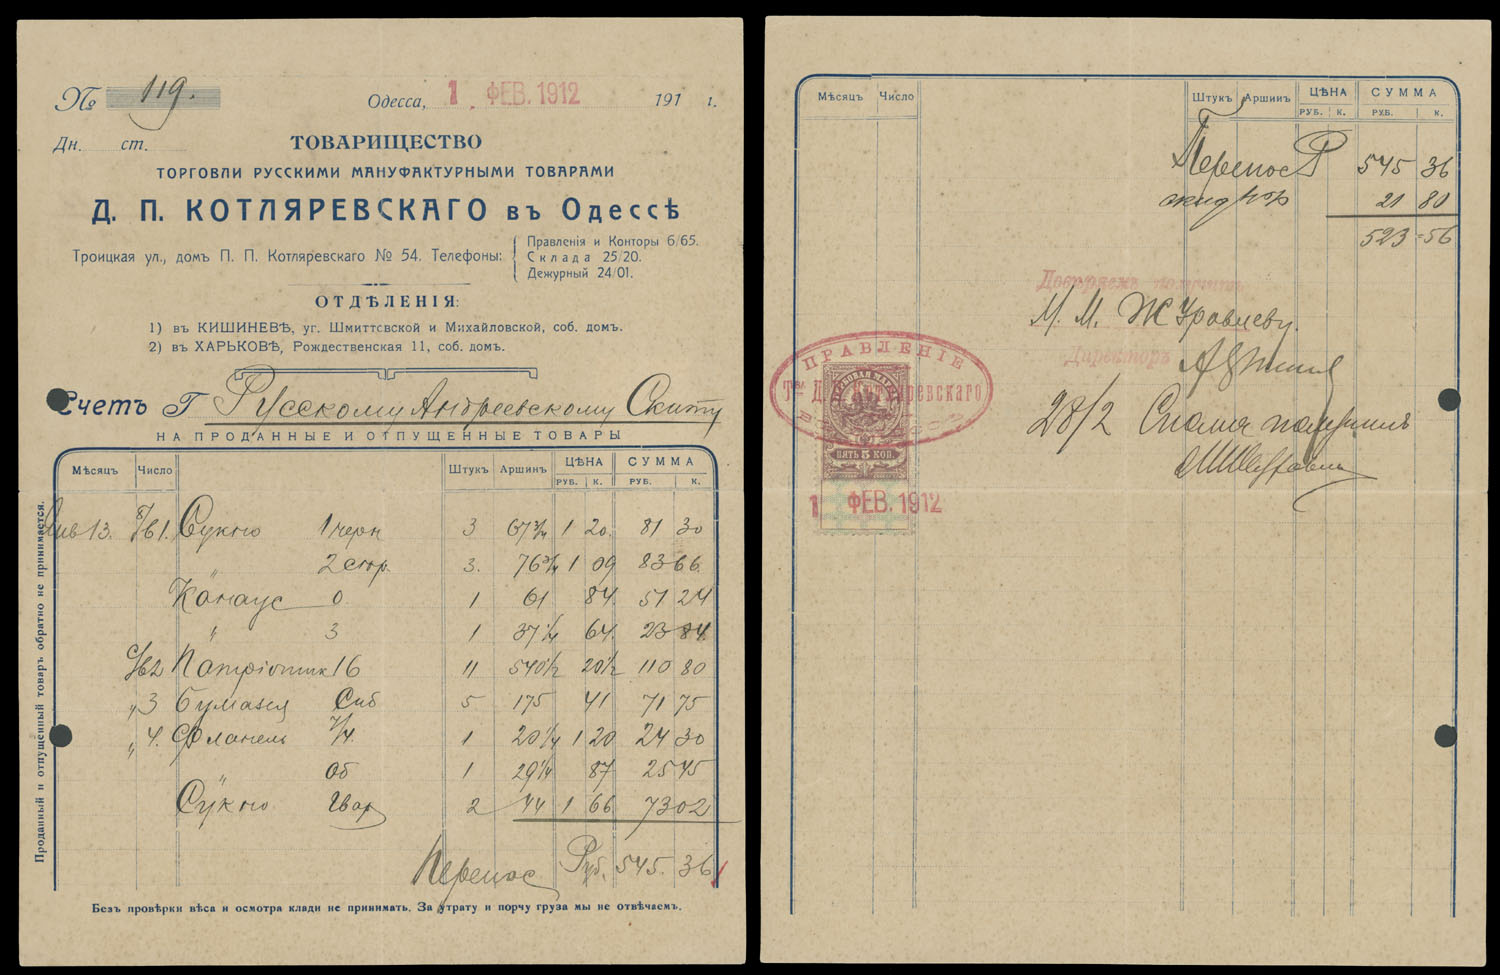 № 119.
Одесса, 1 ФЕВ. 1912 191 г.
Дн. ст.
ТОВАРИЩЕСТВО
ТОРГОВЛИ РУССКИМИ МАНУФАКТУРНЫМИ ТОВАРАМИ
Д. П. КОТЛЯРЕВСКАГО въ Одессѣ
Троицкая ул., домъ П. П. Котляревскаго № 54. Телефоны:
Правленія и Конторы 6/65.
Склада 25/20.
Дежурный 24/01.
ОТДѢЛЕНІЯ:
1) въ КИШИНЕВѢ, уг. Шмиттовской и Михайловской, соб. домъ.
2) въ ХАРЬКОВѢ, Рождественская 11, соб. домъ.
Счетъ Г Русскому Андреевскому Скиту
НА ПРОДАННЫЕ И ОТПУЩЕННЫЕ ТОВАРЫ
Мѣсяцъ Число Штукъ Аршинъ ЦѢНА СУММА
РУБ. К. РУБ. К.
Янв 13. 1. Сукно 1 черн 3 67 3/4 1 20. 81 30
2 3. 76 3/4 1 09 83 66
Канаус 0 1 61 84 51 24
" 3 1 37 1/4 64 23 84
2 Патріотик 16 11 540 1/2 20 1/2 110 80
" 3 Бумазея Сиб 5 175 41 71 75
" 4. Фланель 7/4. 1 20 1/4 1 20 24 30
" Об 1 29 1/4 87 25 45
Сукно Гвар 2 44 1 66 73 02
Перенос Руб. 545. 36
Безъ провѣрки вѣса и осмотра клади не принимать. За утрату и порчу груза мы не отвѣчаемъ.
Проданный и отпущенный товаръ обратно не принимается.
Мѣсяцъ Число Штукъ Аршинъ ЦѢНА СУММА
РУБ. К. РУБ. К.
Перенос Р 545 36
21 80
523 = 56
Довѣряемъ получить
М. М. Журавлеву.
Директоръ
ПРАВЛЕНІЕ
Т-ва Д. П. Котляревскаго
ВЪ ОДЕССѢ
ГЕРБОВАЯ МАРКА
ПЯТЬ 5 КОП.
1 ФЕВ. 1912
28/2 Сполна получилъ